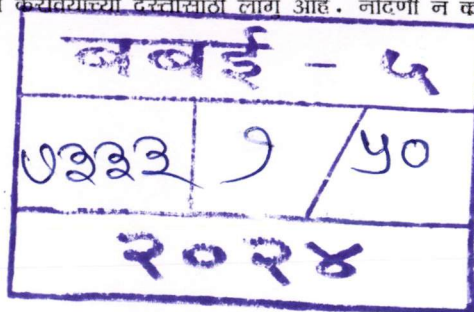 करावयाच्या दस्तासाठी लागु आहे. नोंदणी न क
बबई - ५
७३३३ १ /५०
२०२४